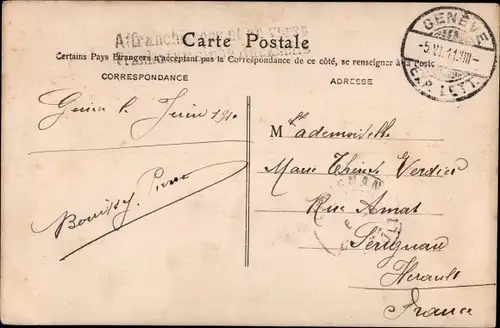 Carte Postale
Certains Pays Etrangers n'acceptant pas la Correspondance de ce côté, se renseigner à la Poste
CORRESPONDANCE
ADRESSE
GENÈVE
EXP. LETT.
Juin 191
Bouissy Pierre
Mademoiselle
Marie Thérèse Verdier
Rue Amat
Serignan
Herault
France